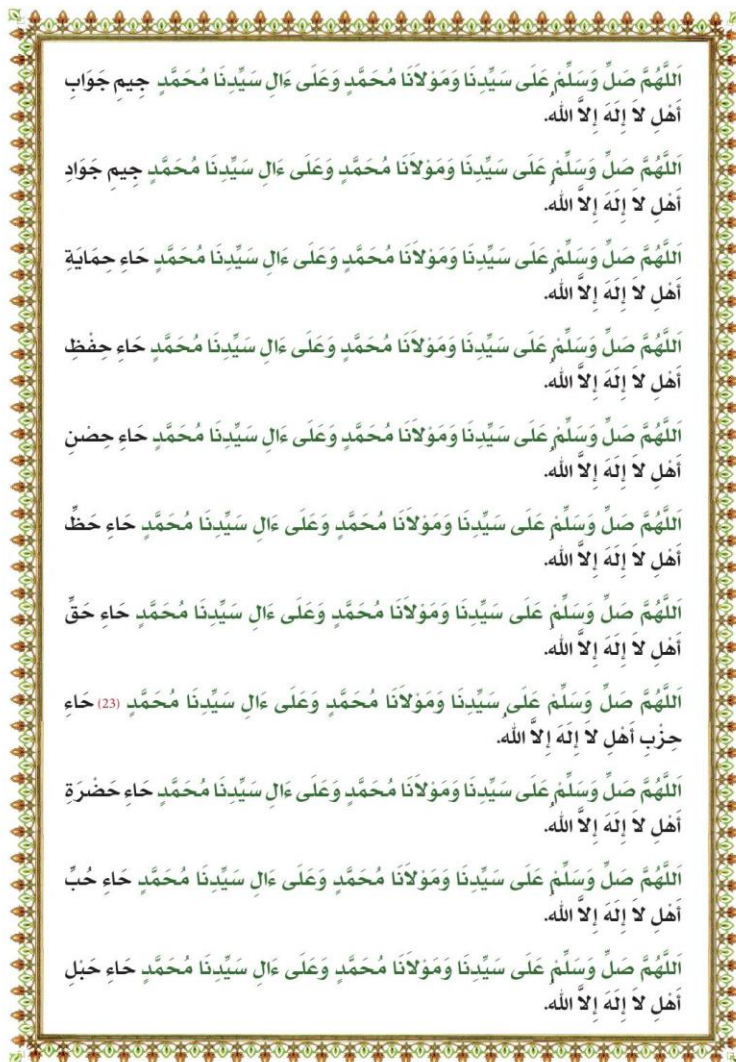 اَللَّهُمَّ صَلِّ وَسَلِّمْ عَلَى سَيِّدِنَا وَمَوْلاَنَا مُحَمَّدٍ وَعَلَى ءَالِ سَيِّدِنَا مُحَمَّدٍ جِيمِ جَوَابِ
أَهْلِ لاَ إِلَهَ إِلاَّ اللهُ.
اَللَّهُمَّ صَلِّ وَسَلِّمْ عَلَى سَيِّدِنَا وَمَوْلاَنَا مُحَمَّدٍ وَعَلَى ءَالِ سَيِّدِنَا مُحَمَّدٍ جِيمِ جَوَادِ
أَهْلِ لاَ إِلَهَ إِلاَّ اللهُ.
اَللَّهُمَّ صَلِّ وَسَلِّمْ عَلَى سَيِّدِنَا وَمَوْلاَنَا مُحَمَّدٍ وَعَلَى ءَالِ سَيِّدِنَا مُحَمَّدٍ حَاءِ حِمَايَةِ
أَهْلِ لاَ إِلَهَ إِلاَّ اللهُ.
اَللَّهُمَّ صَلِّ وَسَلِّمْ عَلَى سَيِّدِنَا وَمَوْلاَنَا مُحَمَّدٍ وَعَلَى ءَالِ سَيِّدِنَا مُحَمَّدٍ حَاءِ حِفْظِ
أَهْلِ لاَ إِلَهَ إِلاَّ اللهُ.
اَللَّهُمَّ صَلِّ وَسَلِّمْ عَلَى سَيِّدِنَا وَمَوْلاَنَا مُحَمَّدٍ وَعَلَى ءَالِ سَيِّدِنَا مُحَمَّدٍ حَاءِ حِصْنِ
أَهْلِ لاَ إِلَهَ إِلاَّ اللهُ.
اَللَّهُمَّ صَلِّ وَسَلِّمْ عَلَى سَيِّدِنَا وَمَوْلاَنَا مُحَمَّدٍ وَعَلَى ءَالِ سَيِّدِنَا مُحَمَّدٍ حَاءِ حَظِّ
أَهْلِ لاَ إِلَهَ إِلاَّ اللهُ.
اَللَّهُمَّ صَلِّ وَسَلِّمْ عَلَى سَيِّدِنَا وَمَوْلاَنَا مُحَمَّدٍ وَعَلَى ءَالِ سَيِّدِنَا مُحَمَّدٍ حَاءِ حَقِّ
أَهْلِ لاَ إِلَهَ إِلاَّ اللهُ.
اَللَّهُمَّ صَلِّ وَسَلِّمْ عَلَى سَيِّدِنَا وَمَوْلاَنَا مُحَمَّدٍ وَعَلَى ءَالِ سَيِّدِنَا مُحَمَّدٍ (23) حَاءِ
حِزْبِ أَهْلِ لاَ إِلَهَ إِلاَّ اللهُ.
اَللَّهُمَّ صَلِّ وَسَلِّمْ عَلَى سَيِّدِنَا وَمَوْلاَنَا مُحَمَّدٍ وَعَلَى ءَالِ سَيِّدِنَا مُحَمَّدٍ حَاءِ حَضْرَةِ
أَهْلِ لاَ إِلَهَ إِلاَّ اللهُ.
اَللَّهُمَّ صَلِّ وَسَلِّمْ عَلَى سَيِّدِنَا وَمَوْلاَنَا مُحَمَّدٍ وَعَلَى ءَالِ سَيِّدِنَا مُحَمَّدٍ حَاءِ حُبِّ
أَهْلِ لاَ إِلَهَ إِلاَّ اللهُ.
اَللَّهُمَّ صَلِّ وَسَلِّمْ عَلَى سَيِّدِنَا وَمَوْلاَنَا مُحَمَّدٍ وَعَلَى ءَالِ سَيِّدِنَا مُحَمَّدٍ حَاءِ حَبْلِ
أَهْلِ لاَ إِلَهَ إِلاَّ اللهُ.